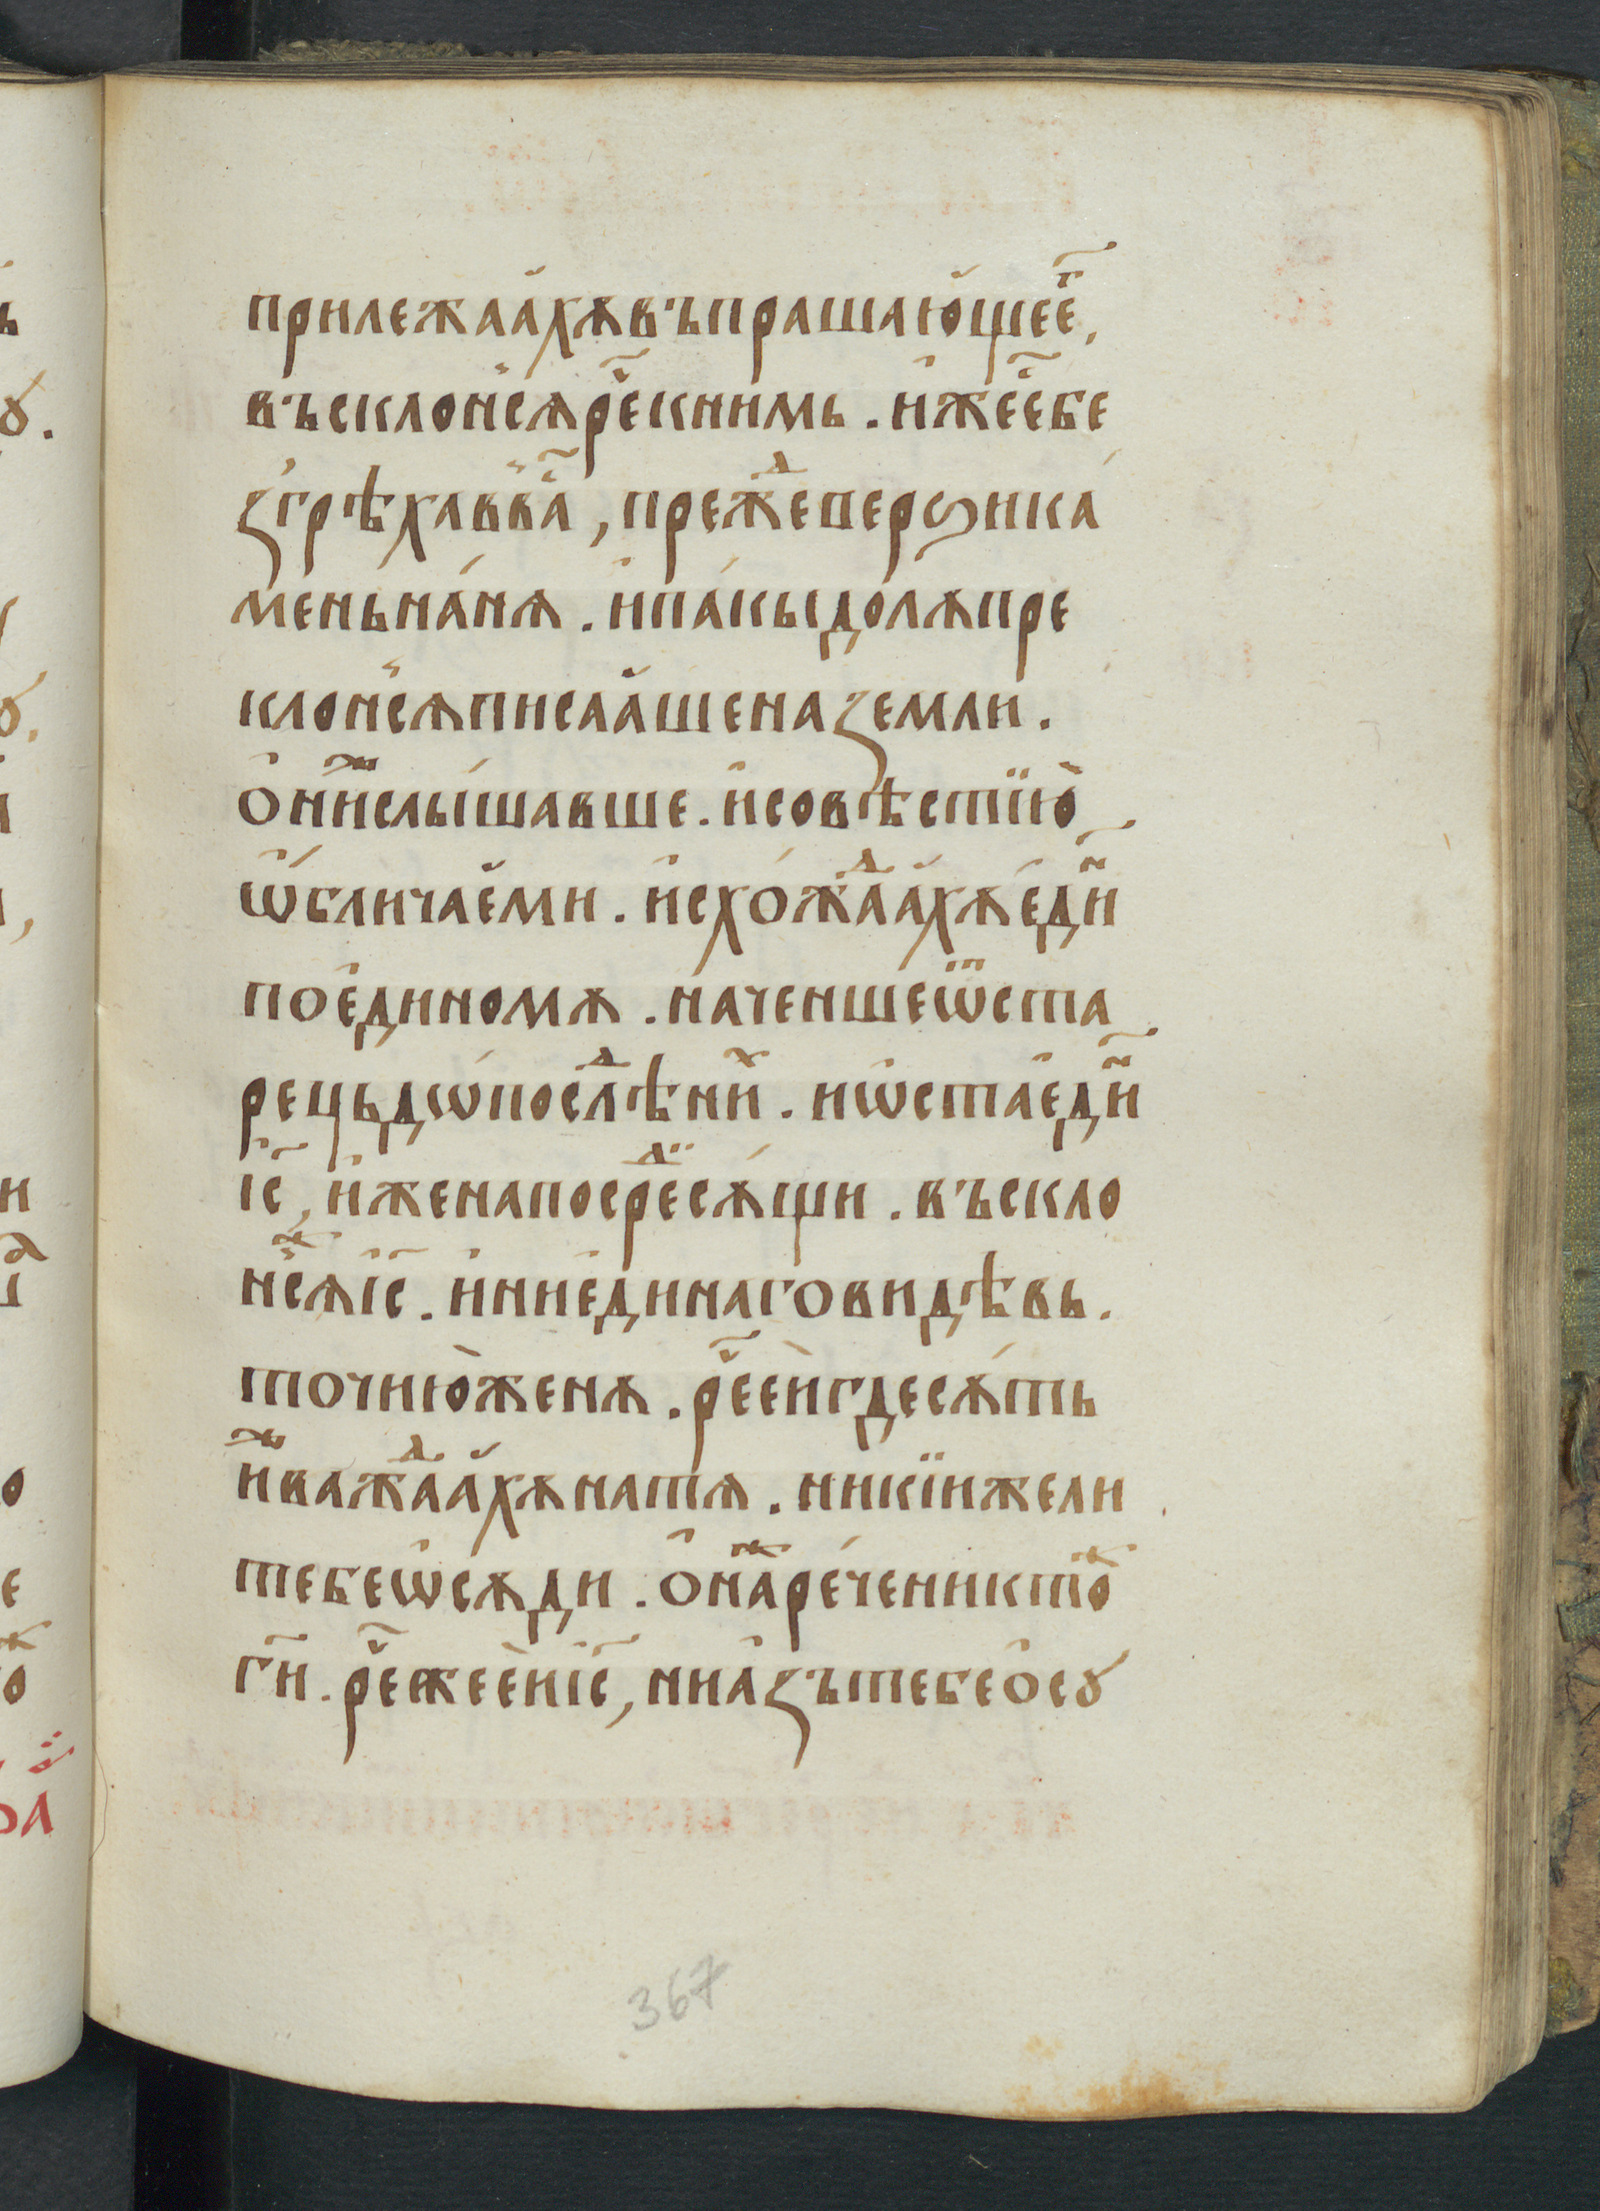 прилежаа́хѫвъпрашаю҆щеег҃,
въсклон̾сѧре҃книмь. и҆жее҃бе
згрѣхавва҃с, преⷤдевер꙳ꙁика
меньна́нѧ. и҆па́кыдолѫпре
клон̾сѧписаа́шеназемли.
Ѻ҆ни́ⷤслы́шавше. и҆совѣстїю҆
ѡ҆бⷧличае҆ми. и҆схо́жⷣаа́хѫе҆ди҃н
пое҆диномѫ. на́ченшеѿста
рець,дѡ҆послⷣѣни́хъ. иѡ҆стае҆ди҃н
і҆с҃, и҆женапосреⷣсѫ́щи. въскло
н̾сѧⷤі҆с҃. и҆ние҆динаговидѣвь.
точию҆женѫ. ре҃че́и҆гдесѫ́ть
и҆ⷤважⷣаа́хѫнатѧ. никїижели
тебеѡ҆сѫди. Ѻ҆на́ⷤре́ченикто́ⷤ
г҃и. ре҃чжее́и҆і҆с҃, ниа҆зътебеѻ҆сꙋ
367